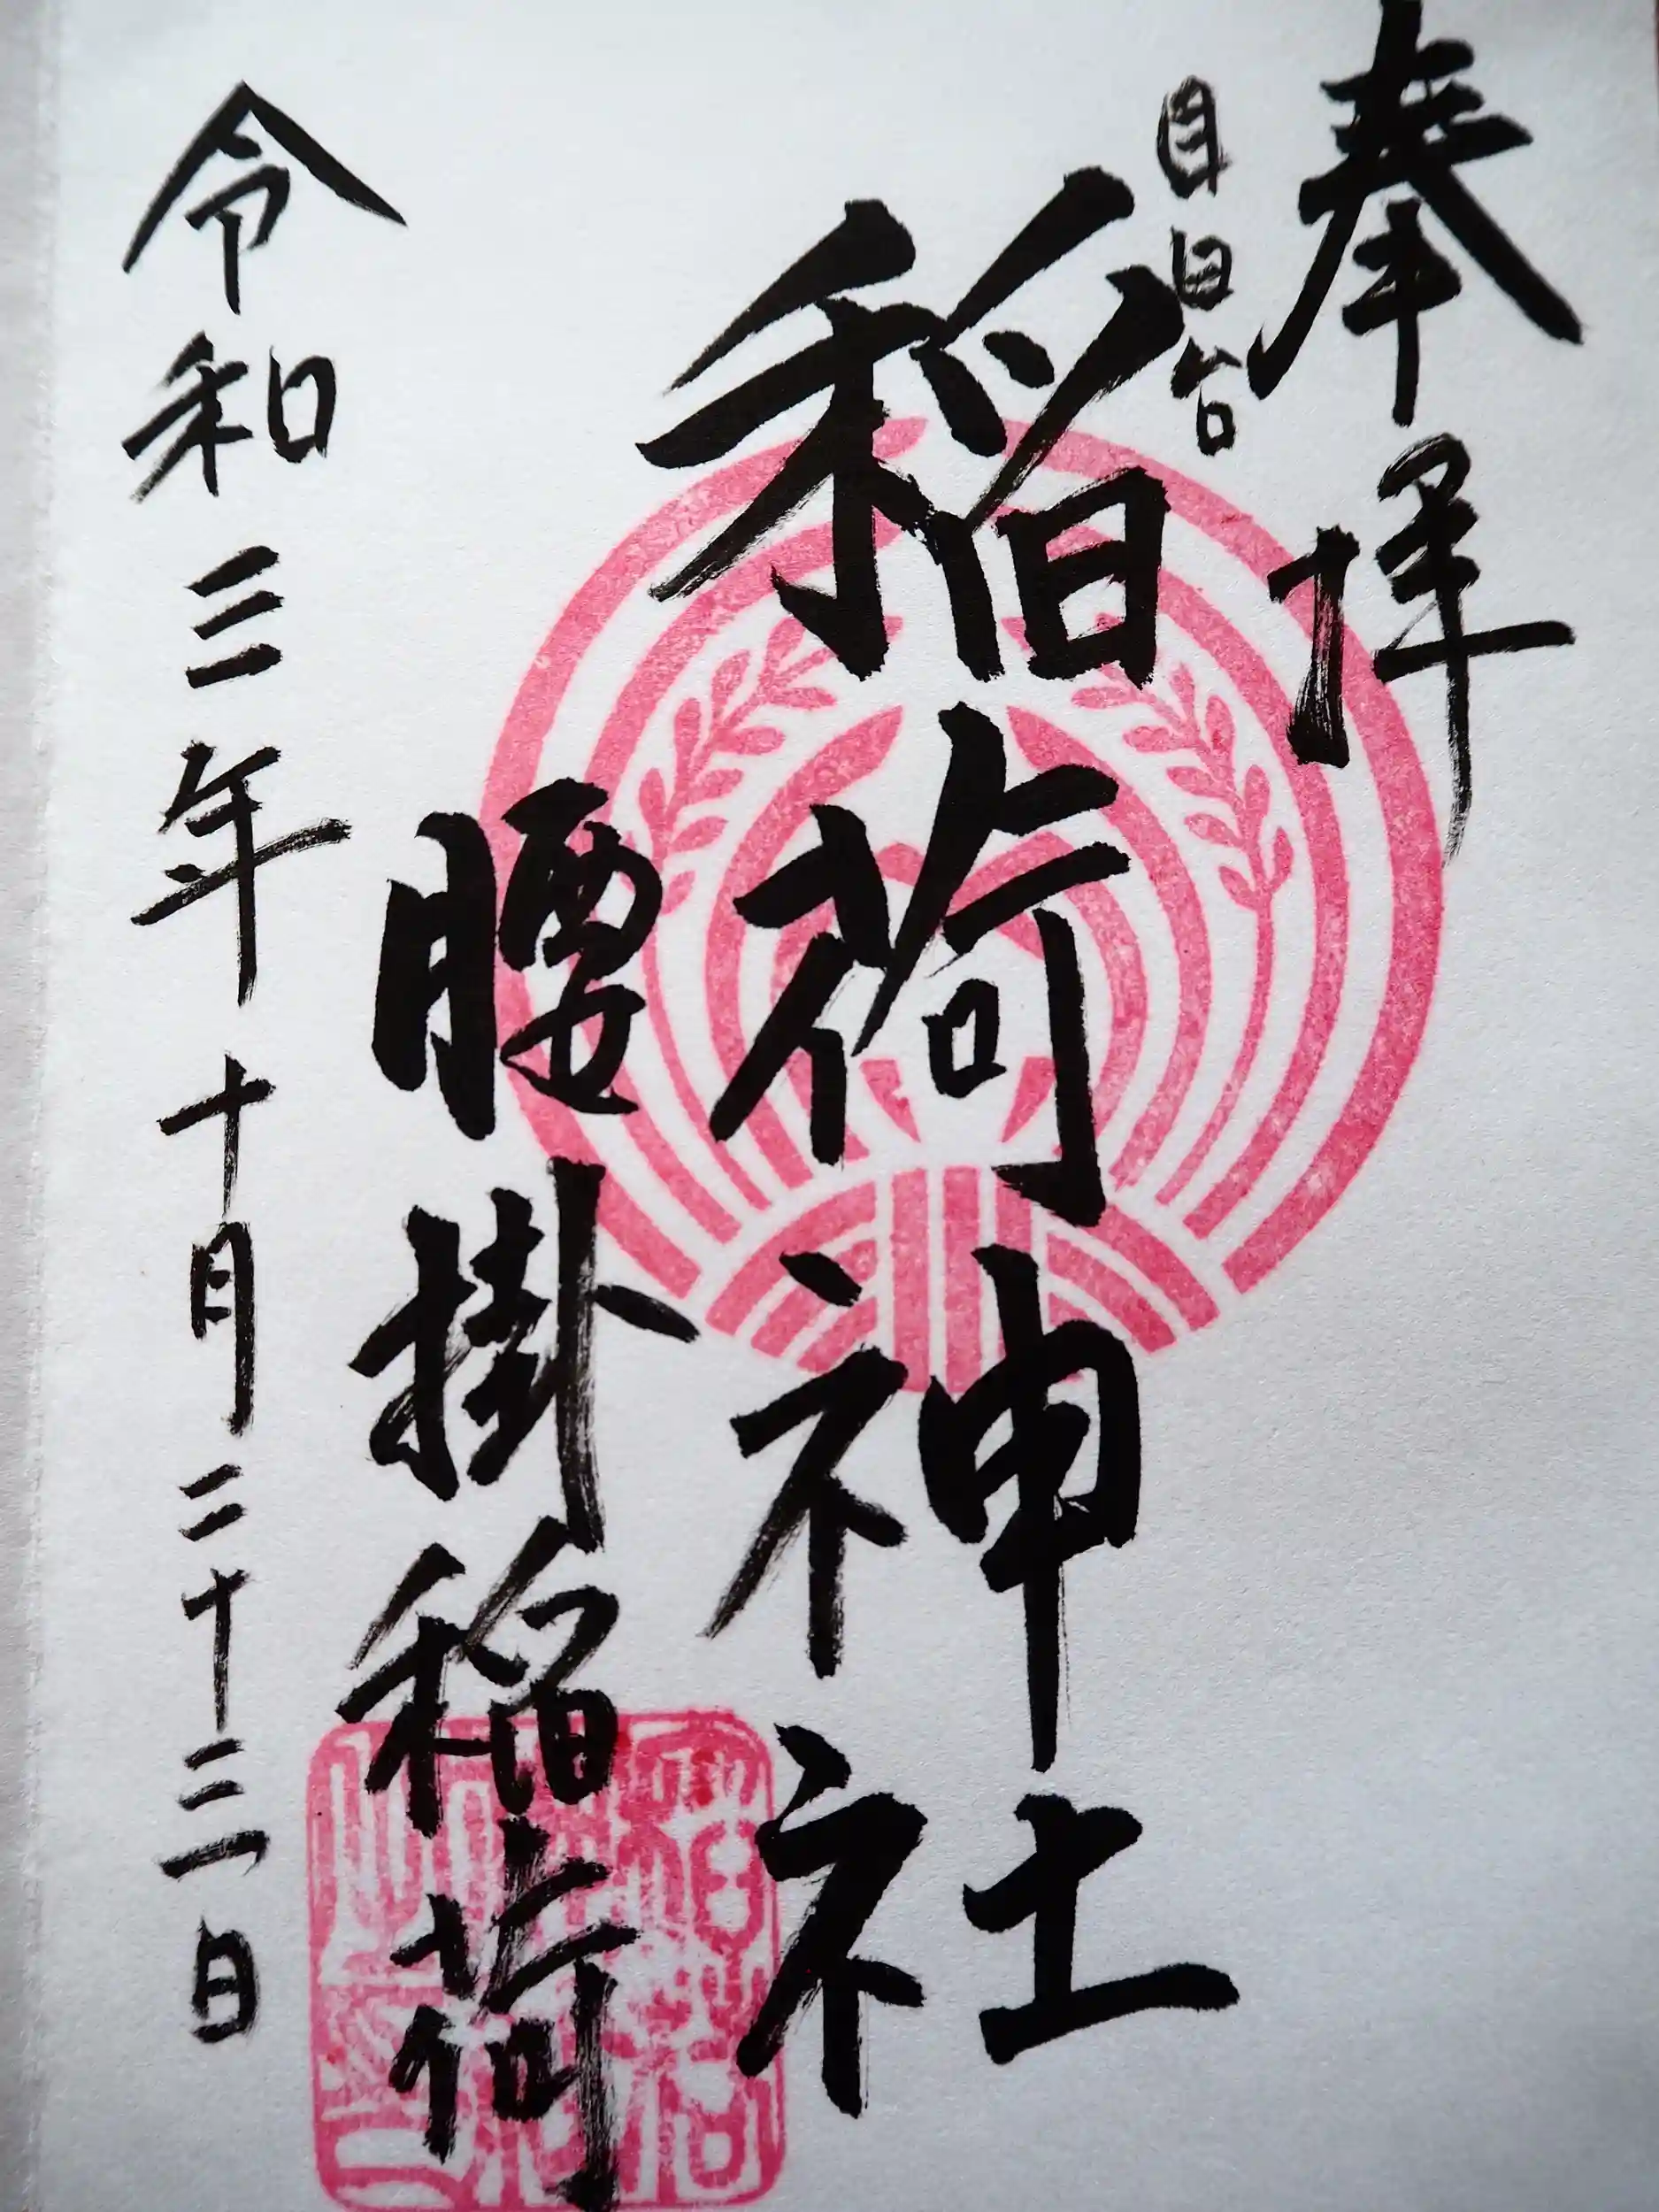 奉拝
目白台
稲荷神社
腰掛稲荷
令和三年十月二十三日